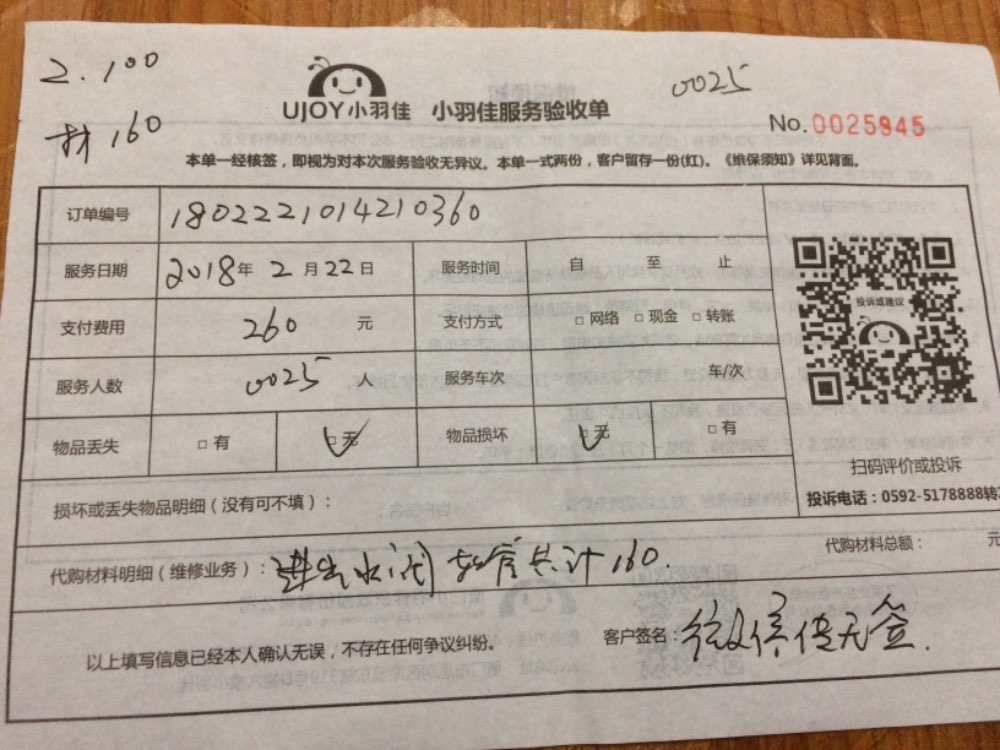 2.100
材160
UJOY小羽佳 小羽佳服务验收单
0025
No.0025945
本单一经核签，即视为对本次服务验收无异议。本单一式两份，客户留存一份(红)。《维保须知》详见背面。
订单编号 1802221014210360
服务日期 2018年2月22日 服务时间 自 至 止
支付费用 260 元 支付方式 □网络 □现金 □转账
服务人数 0025 服务车次 车/次
物品丢失 □有 □无 物品损坏 □无 □有
投诉或建议
扫码评价或投诉
投诉电话：0592-5178888转
损坏或丢失物品明细（没有可不填）：
代购材料明细（维修业务）：进出水阀软管共计160
代购材料总额： 元
以上填写信息已经本人确认无误，不存在任何争议纠纷。
客户签名：